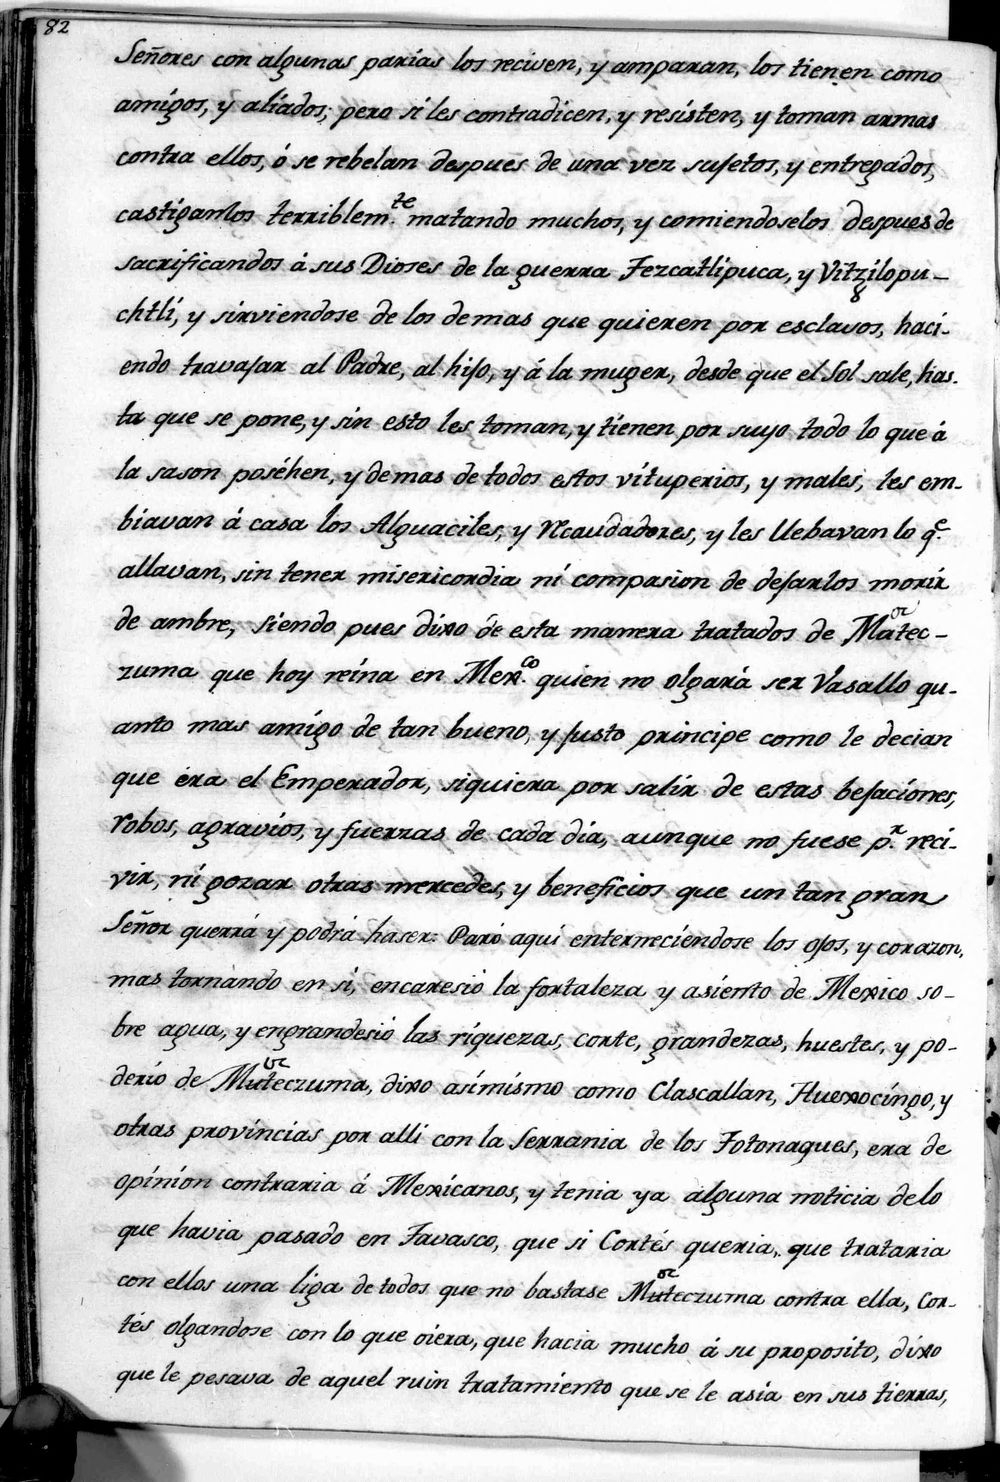 82
Señores con algunas parias los reciven, y amparan, los tienen como
amigos, y aliados; pero si les contradicen, y resisten, y toman armas
contra ellos, ó se rebelan despues de una vez sujetos, y entregados,
castiganlos terriblem.te matando muchos, y comiendoselos despues de
sacrificandos á sus Dioses de la guerra Tezcatlipuca, y Vitzilopu-
chtli, y sirviendose de los demas que quieren por esclavos, haci-
endo travajar al Padre, al hijo, y á la muger, desde que el Sol sale, has-
ta que se pone, y sin esto les toman, y tienen por suyo todo lo que á
la sason poséhen, y demas de todos estos vituperios, y males, les em-
biavan á casa los Alguaciles, y Recaudadores, y les llebavan lo q.e
allavan, sin tener misericordia ni compasion de dejarlos morir
de ambre, siendo pues dixo de esta manera tratados de Motec-
zuma que hoy reina en Mex.co quien no olgará ser Vasallo qu-
anto mas amigo de tan bueno, y justo principe como le decian
que era el Emperador, siquiera por salir de estas bejaciones,
robos, agravios, y fuerzas de cada dia, aunque no fuese p.r reci-
vir, ni gozar otras mercedes, y beneficios que un tan gran
Señor querrá y podrá haser: Paró aqui enterneciendose los ojos, y corazon,
mas tornando en si, encaresió la fortaleza y asiento de Mexico so-
bre agua, y engrandesió las riquezas, corte, grandezas, huestes, y po-
derio de Moteczuma, dixo asimismo como Clascallan, Huexocingo, y
otras provincias por alli con la Serrania de los Totonaques, era de
opinion contraria á Mexicanos, y tenia ya alguna noticia de lo
que havia pasado en Tavasco, que si Cortés queria, que trataria
con ellos una liga de todos que no bastase Moteczuma contra ella, Cor-
tés olgandose con lo que oiera, que hacia mucho á su proposito, dixo
que le pesava de aquel ruin tratamiento que se le asia en sus tierras,